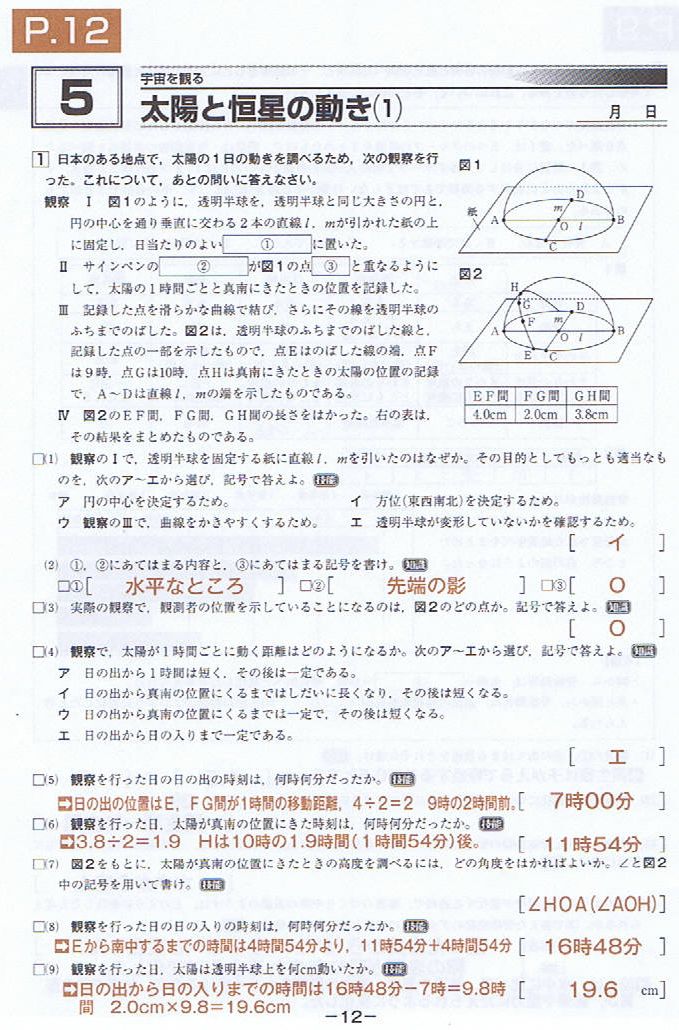 P.12
5
宇宙を観る
太陽と恒星の動き(1)
月 日
1 日本のある地点で，太陽の1日の動きを調べるため，次の観察を行
った。これについて，あとの問いに答えなさい。
観察 Ⅰ 図1のように，透明半球を，透明半球と同じ大きさの円と，
円の中心を通り垂直に交わる2本の直線l，mが引かれた紙の上
に固定し，日当たりのよい ① に置いた。
Ⅱ サインペンの ② が図1の点 ③ と重なるように
して，太陽の1時間ごとと真南にきたときの位置を記録した。
Ⅲ 記録した点を滑らかな曲線で結び，さらにその線を透明半球の
ふちまでのばした。図2は，透明半球のふちまでのばした線と，
記録した点の一部を示したもので，点Eはのばした線の端，点F
は9時，点Gは10時，点Hは真南にきたときの太陽の位置の記録
で，A〜Dは直線l，mの端を示したものである。
Ⅳ 図2のEF間，FG間，GH間の長さをはかった。右の表は，
その結果をまとめたものである。
図1
紙
A B C D O l m
図2
A B C D E F G H O l m
EF間 FG間 GH間
4.0cm 2.0cm 3.8cm
□(1) 観察のⅠで，透明半球を固定する紙に直線l，mを引いたのはなぜか。その目的としてもっとも適当なも
のを，次のア〜エから選び，記号で答えよ。技能
ア 円の中心を決定するため。 イ 方位(東西南北)を決定するため。
ウ 観察のⅢで，曲線をかきやすくするため。 エ 透明半球が変形していないかを確認するため。
[ イ ]
(2) ①，②にあてはまる内容と，③にあてはまる記号を書け。知識
□①[ 水平なところ ] □②[ 先端の影 ] □③[ O ]
□(3) 実際の観察で，観測者の位置を示していることになるのは，図2のどの点か。記号で答えよ。知識
[ O ]
□(4) 観察で，太陽が1時間ごとに動く距離はどのようになるか。次のア〜エから選び，記号で答えよ。知識
ア 日の出から1時間は短く，その後は一定である。
イ 日の出から真南の位置にくるまではしだいに長くなり，その後は短くなる。
ウ 日の出から真南の位置にくるまでは一定で，その後は短くなる。
エ 日の出から日の入りまで一定である。
[ エ ]
□(5) 観察を行った日の日の出の時刻は，何時何分だったか。技能
➡日の出の位置はE，FG間が1時間の移動距離，4÷2=2 9時の2時間前。[ 7時00分 ]
□(6) 観察を行った日，太陽が真南の位置にきた時刻は，何時何分だったか。技能
➡3.8÷2=1.9 Hは10時の1.9時間(1時間54分)後。 [ 11時54分 ]
□(7) 図2をもとに，太陽が真南の位置にきたときの高度を調べるには，どの角度をはかればよいか。∠と図2
中の記号を用いて書け。技能
[∠HOA(∠AOH)]
□(8) 観察を行った日の日の入りの時刻は，何時何分だったか。技能
➡Eから南中するまでの時間は4時間54分より，11時54分+4時間54分 [ 16時48分 ]
□(9) 観察を行った日，太陽は透明半球上を何cm動いたか。技能
➡日の出から日の入りまでの時間は16時48分-7時=9.8時
間 2.0cm×9.8=19.6cm
[ 19.6 cm]
-12-